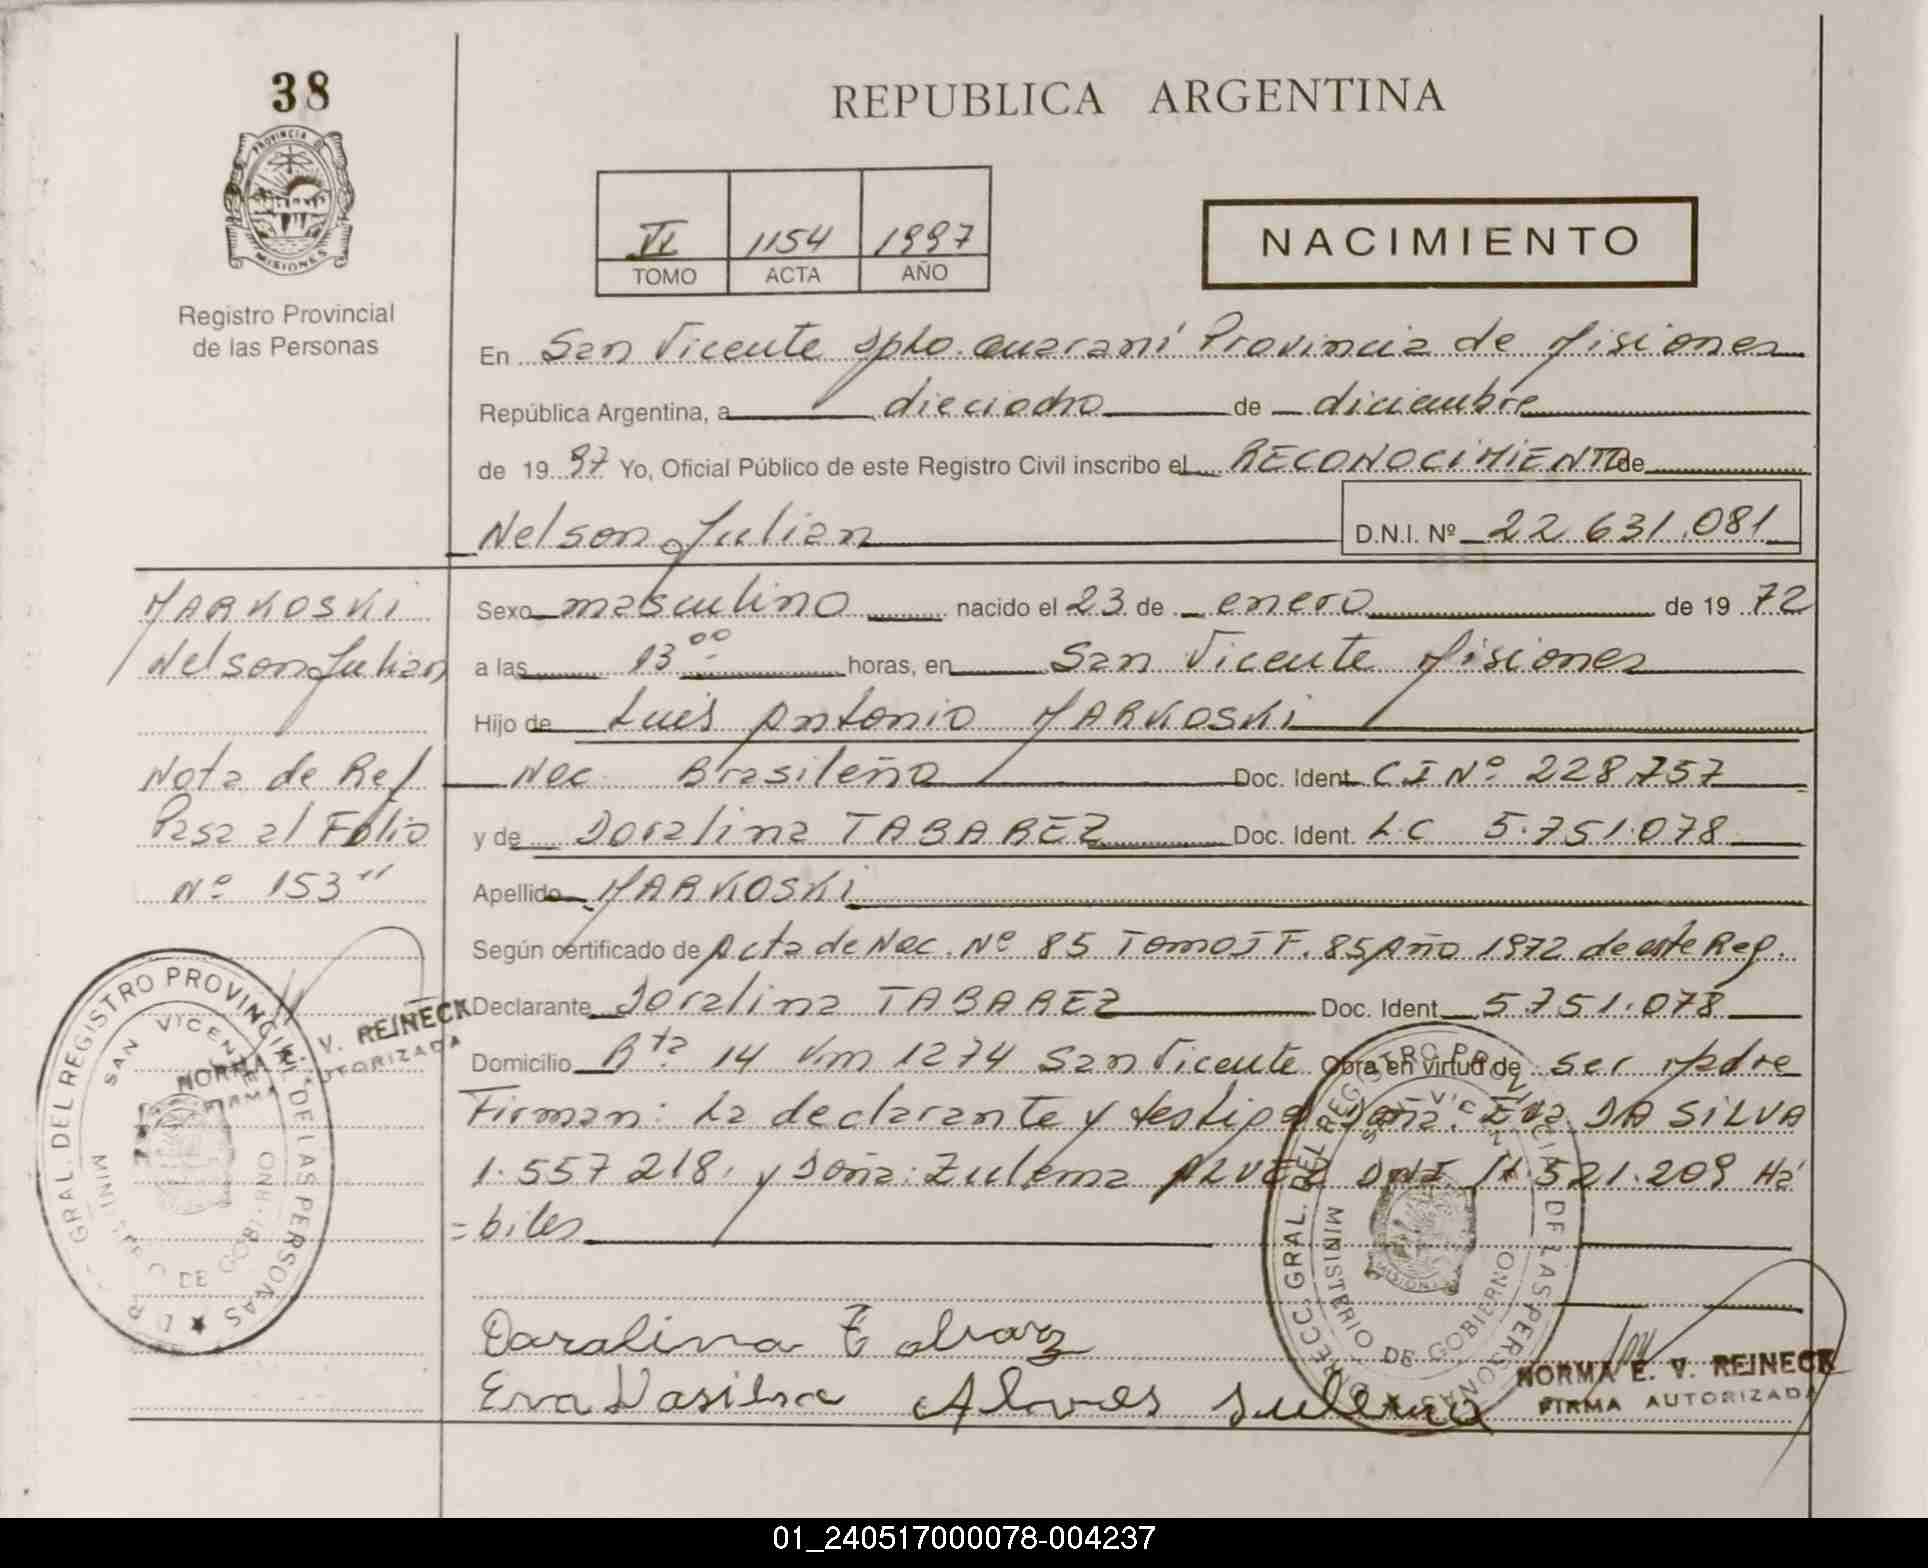 38
PROVINCIA DE
MISIONES
Registro Provincial
de las Personas
REPUBLICA ARGENTINA
VI 1154 1997
TOMO ACTA AÑO
NACIMIENTO
En San Vicente Dpto. Guaraní Provincia de Misiones
República Argentina, a dieciocho de diciembre
de 19 97 Yo, Oficial Público de este Registro Civil inscribo el RECONOCIMIENTO de
Nelson Julian D.N.I. Nº 22 631.081
MARKOSKI
Nelson Julian
Nota de Ref
Pasa al Folio
Nº 153"
Sexo masculino nacido el 23 de enero de 19 72
a las 13 00 horas, en San Vicente Misiones
Hijo de Luis Antonio MARKOSKI
Nac. Brasileño Doc. Ident. C I Nº 228.757
y de Doralina TABAREZ Doc. Ident. L.C 5.751.078
Apellido MARKOSKI
Según certificado de Acta de Nac. Nº 85 Tomo I F. 85 Año 1972 de este Reg.
Declarante Doralina TABAREZ Doc. Ident 5.751.078
Domicilio Rta 14 Km 1274 San Vicente Obra en virtud de ser Madre
Firman: La declarante y testigo Doña: Eva DA SILVA
1.557 218. y Doña: Zulema ALVEZ DNI 11.521.209 Há
=biles
Eva Dasilva Alves Sulema
NORMA E. V. REINECK
FIRMA AUTORIZADA
NORMA E. V. REINECK
FIRMA AUTORIZADA
GRAL. DEL REGISTRO PROVINCIAL DE LAS PERSONAS
SAN VICENTE
MINISTERIO DE GOBIERNO
DIRECC. GRAL. DEL REGISTRO PROVINCIAL DE LAS PERSONAS
MINISTERIO DE GOBIERNO
01_240517000078-004237